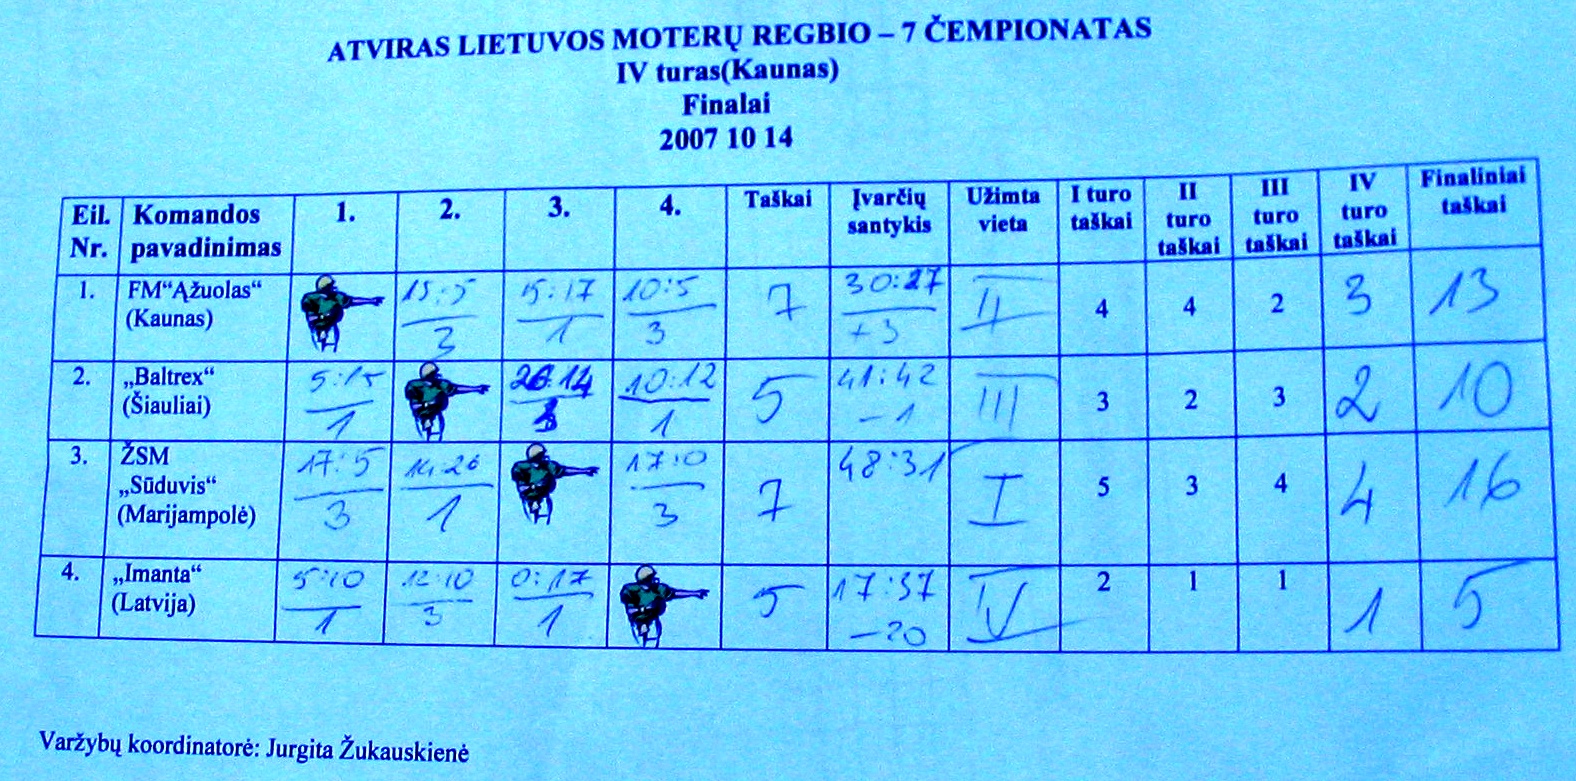 ATVIRAS LIETUVOS MOTERŲ REGBIO – 7 ČEMPIONATAS
IV turas(Kaunas)
Finalai
2007 10 14
Eil. Nr. Komandos pavadinimas 1. 2. 3. 4. Taškai Įvarčių santykis Užimta vieta I turo taškai II turo taškai III turo taškai IV turo taškai Finaliniai taškai
1. FM“Ąžuolas“ 15:5 15:17 10:5 7 30:27 II 4 4 2 3 13
(Kaunas) 3 1 3 +3
2. „Baltrex“ 5:15 26:14 10:12 5 41:42 III 3 2 3 2 10
(Šiauliai) 1 1 -1
3. ŽSM 17:5 14:26 17:0 7 48:31 I 5 3 4 4 16
„Sūduvis“
(Marijampolė) 3 1 3
4. „Imanta“ 5:10 12:10 0:17 5 17:37 IV 2 1 1 1 5
(Latvija) 1 3 1 -20
Varžybų koordinatorė: Jurgita Žukauskienė